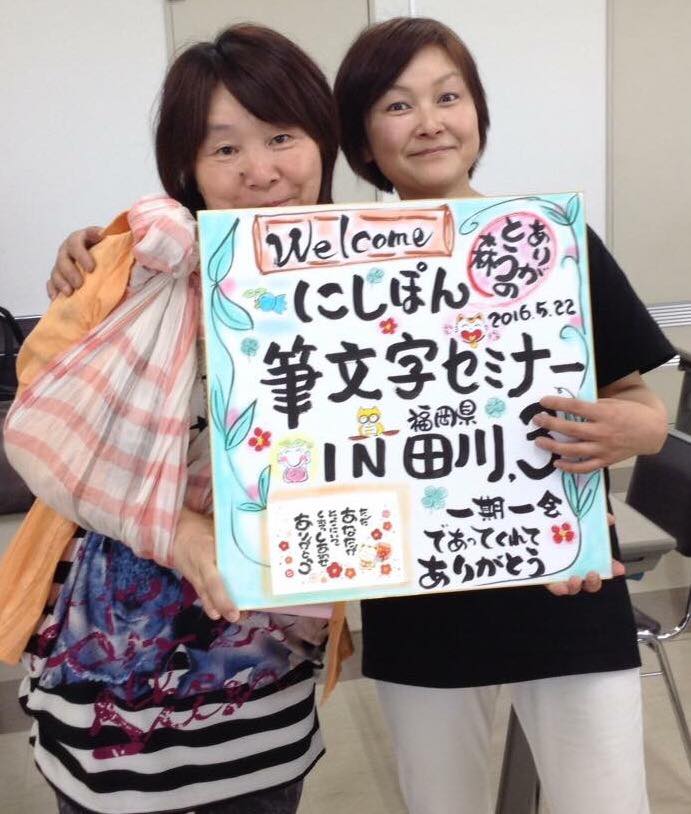 Welcome
ありが
とうの
森
にしぽん
2016.5.22
筆文字セミナー
福岡県
IN 田川,3
一期一会
であってくれて
ありがとう
ただ
あなたが
ありがとう